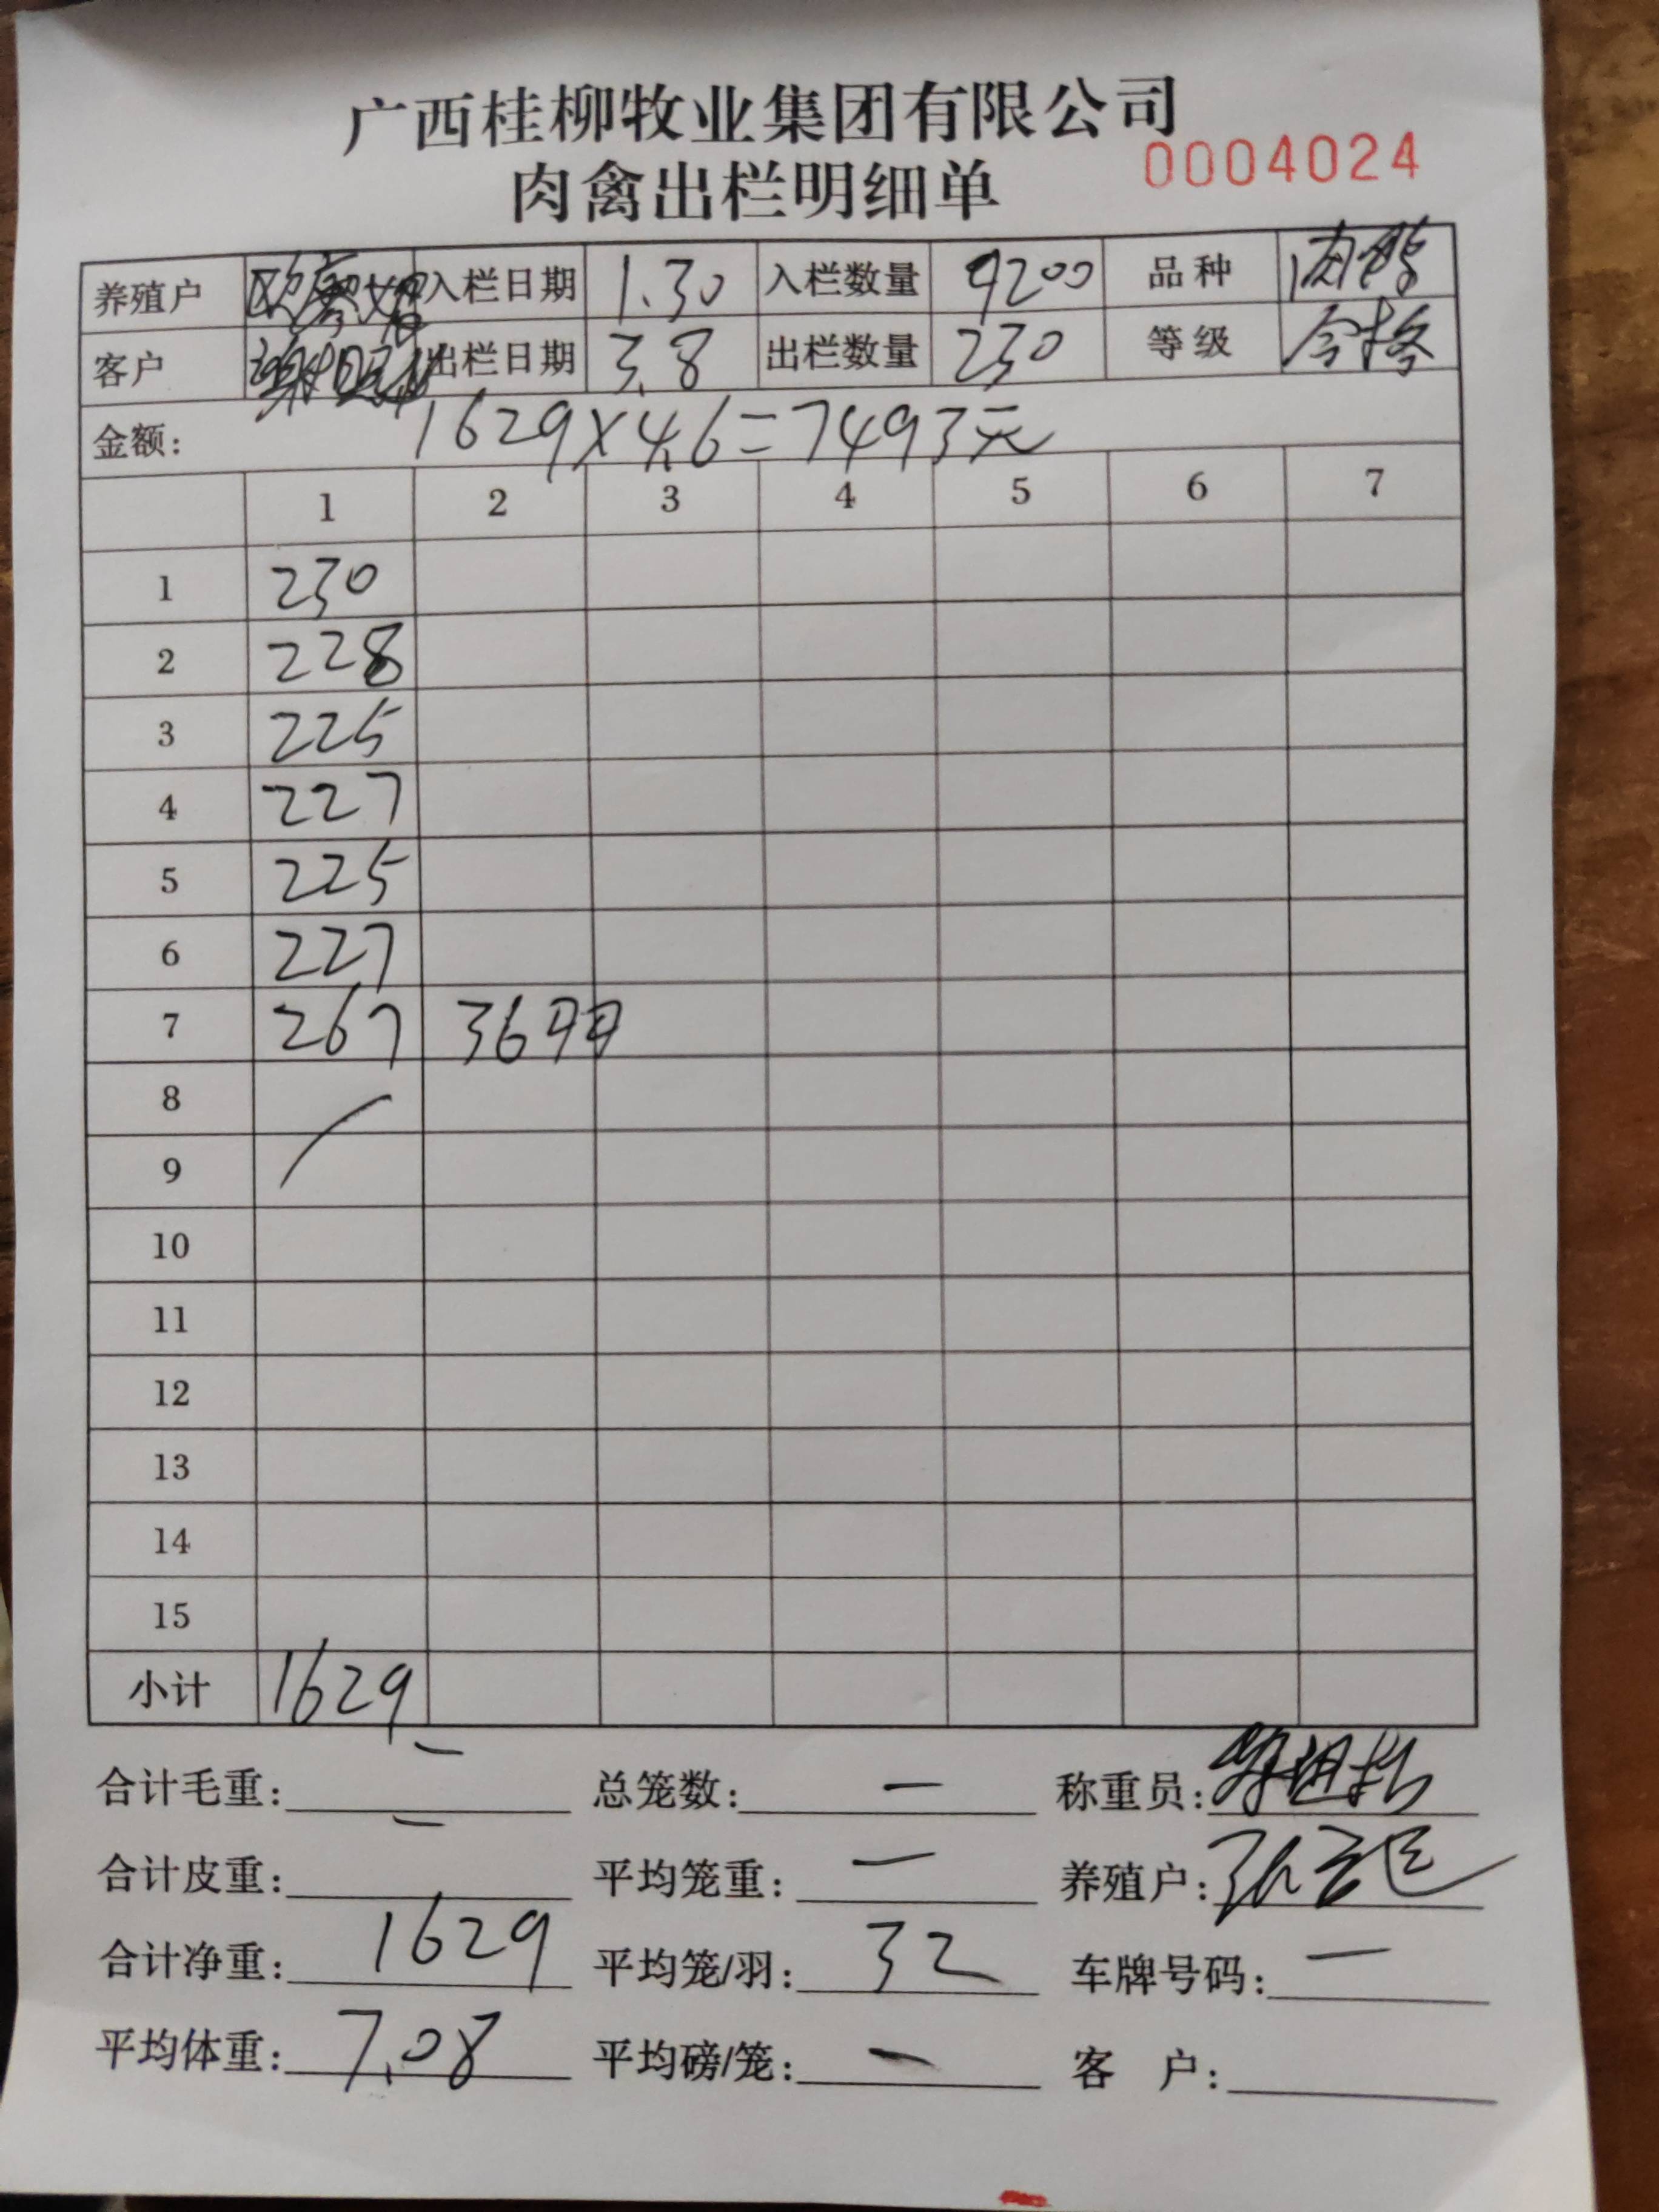 广西桂柳牧业集团有限公司
肉禽出栏明细单
0004024
养殖户 入栏日期 1.30 入栏数量 9200 品种 肉鸭
客户 出栏日期 3.8 出栏数量 230 等级 合格
金额: 1629×4.6=7493元
1 2 3 4 5 6 7
1 230
2 228
3 225
4 227
5 225
6 227
7 267 36
8
9
10
11
12
13
14
15
小计 1629
合计毛重: — 总笼数: — 称重员:
合计皮重: — 平均笼重: — 养殖户:
合计净重: 1629 平均笼/羽: 32 车牌号码: —
平均体重: 7.08 平均磅/笼: — 客 户: